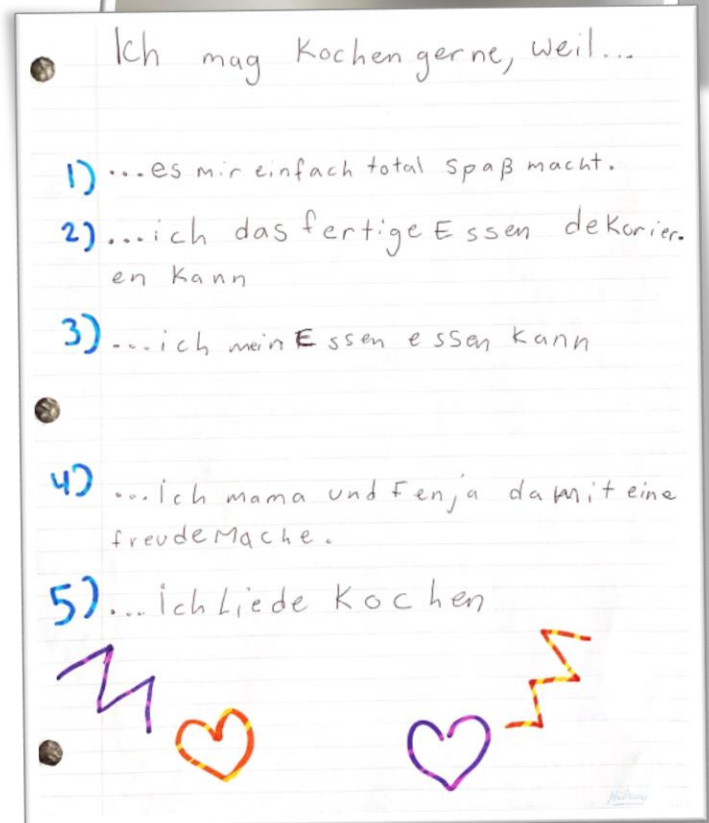 Ich mag Kochen gerne, weil...
1) ...es mir einfach total Spaß macht.
2) ...ich das fertige Essen dekorier-
en kann
3) ...ich mein Essen essen kann
4) ...ich mama und Fenja damit eine
freude Mache.
5) ...ich Liede Kochen